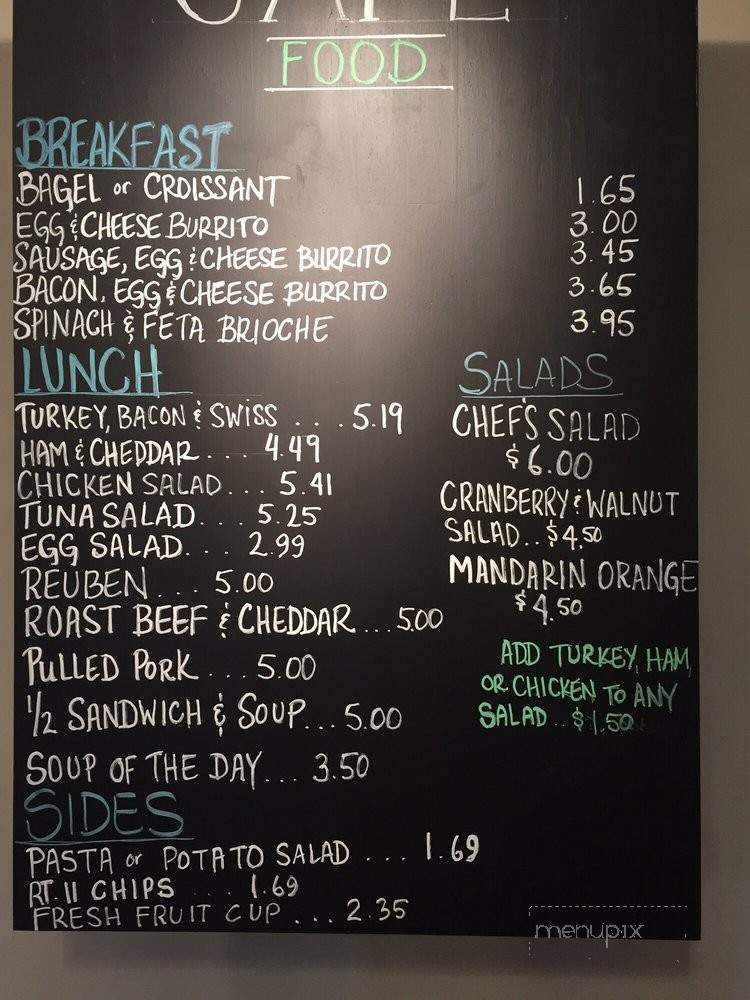 CAFE
FOOD
BREAKFAST
BAGEL or CROISSANT 1.65
EGG & CHEESE BURRITO 3.00
SAUSAGE, EGG & CHEESE BURRITO 3.45
BACON, EGG & CHEESE BURRITO 3.65
SPINACH & FETA BRIOCHE 3.95
LUNCH
TURKEY, BACON & SWISS . . . 5.19
HAM & CHEDDAR .... 4.49
CHICKEN SALAD... 5.41
TUNA SALAD... 5.25
EGG SALAD... 2.99
REUBEN... 5.00
ROAST BEEF & CHEDDAR...5.00
PULLED PORK... 5.00
1/2 SANDWICH & SOUP...5.00
SOUP OF THE DAY... 3.50
SALADS
CHEF'S SALAD
$6.00
CRANBERRY & WALNUT
SALAD..$4.50
MANDARIN ORANGE
$4.50
ADD TURKEY, HAM,
OR CHICKEN TO ANY
SALAD..$1.50
SIDES
PASTA or POTATO SALAD ... 1.69
RT. 11 CHIPS ... 1.69
FRESH FRUIT CUP ... 2.35
menupix